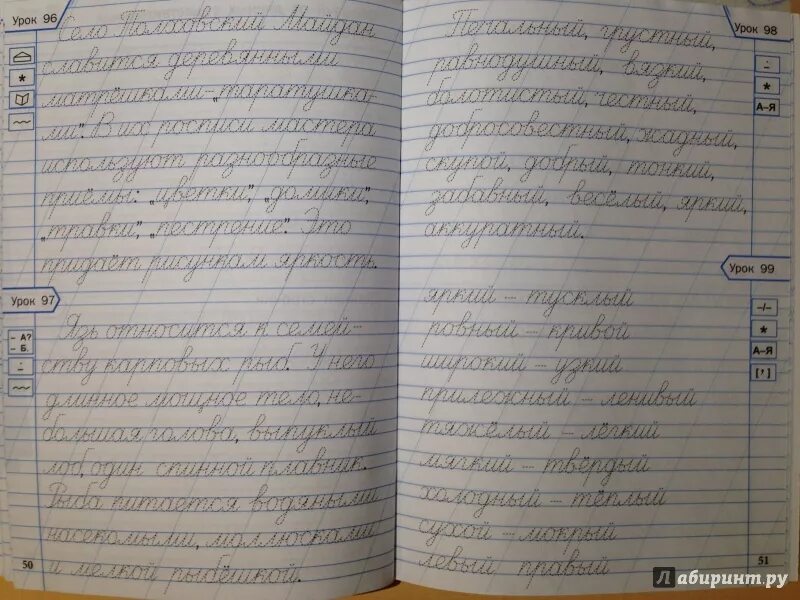 Урок 96
Село Полховский Майдан
славится деревянными
матрёшками-„таратушка-
ми". В их росписи мастера
используют разнообразные
приёмы: „цветки", „домики",
„травки", „пестрение". Это
придаёт рисункам яркость.
Урок 97
– А?
– Б.
Язь относится к семей-
ству карповых рыб. У него
длинное мощное тело, не-
большая голова, выпуклый
лоб, один спинной плавник.
Рыба питается водяными
насекомыми, моллюсками
и мелкой рыбёшкой.
50
Урок 98
А–Я
Печальный, грустный,
равнодушный, вязкий,
болотистый, честный,
добросовестный, жадный,
скупой, добрый, тонкий,
забавный, весёлый, яркий,
аккуратный.
Урок 99
–/–
А–Я
[']
яркий – тусклый
ровный – кривой
широкий – узкий
прилежный – ленивый
тяжёлый – лёгкий
мягкий – твёрдый
холодный – тёплый
сухой – мокрый
левый правый
51
Лабиринт.ру